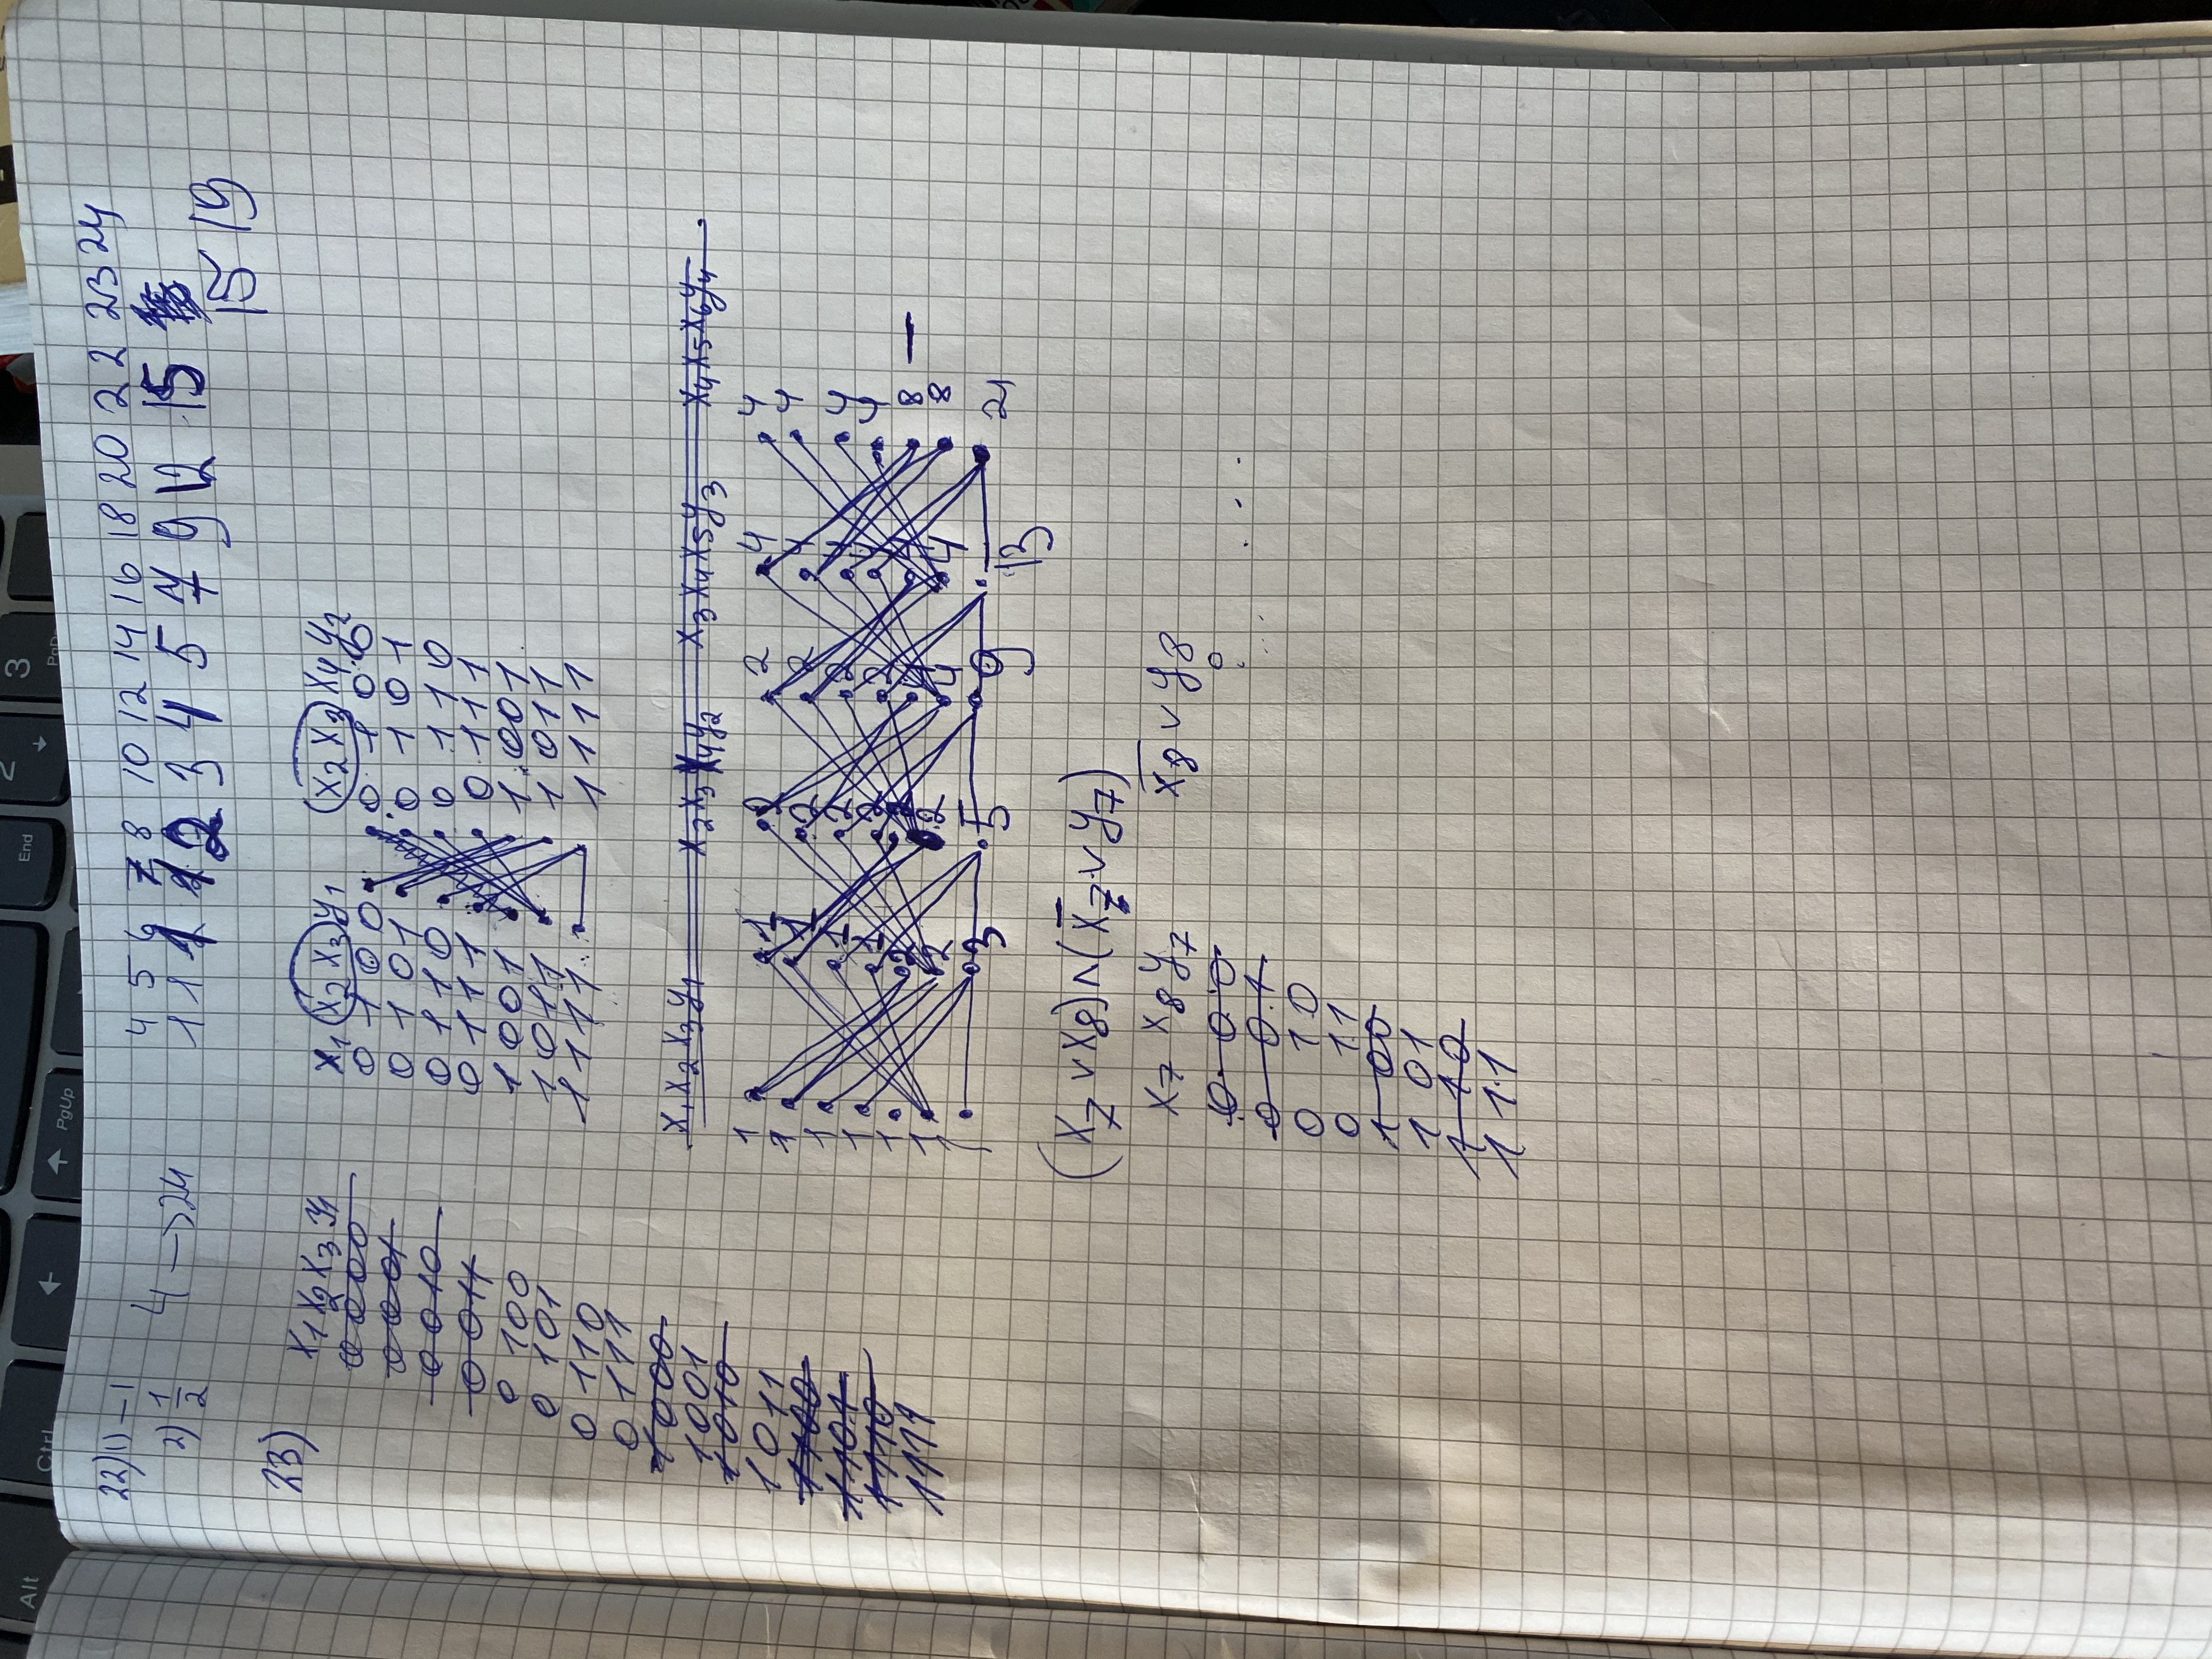 Alt
Ctrl
PgUp
End
2
3
PgDn
22) 1) -1
2) 1/2
4 → 24
4 5 6 7 8 10 12 14 16 18 20 22 23 24
1 1 1 1 2 3 4 5 7 9 12 15
15 19
23)
x1 x2 x3 y1
0 0 0 0
0 0 0 1
0 0 1 0
0 0 1 1
0 1 0 0
0 1 0 1
0 1 1 0
0 1 1 1
1 0 0 0
1 0 0 1
1 0 1 0
1 0 1 1
1 1 0 0
1 1 0 1
1 1 1 0
1 1 1 1
x1 x2 x3 y1 x2 x3 x4 y2
0 1 0 0 0 1 0 0
0 1 0 1 0 1 0 1
0 1 1 0 0 1 1 0
0 1 1 1 0 1 1 1
1 0 0 1 1 0 0 1
1 0 1 1 1 0 1 1
1 1 1 1 1 1 1 1
x1 x2 x3 y1 x2 x3 x4 y2 x3 x4 x5 y3 x4 x5 x6 y4
1 1 2 2 4 4
1 1 2 2 4 4
1 1 2 2 4 4
1 1 2 2 4 4
1 2 2 4 4 8 –
1 2 2 4 4 8
1 3 5 9 13 21
(x7 ∨ x8) ∧ (x̄7 ∨ y7)
x7 x8 y7 x̄8 ∨ y8
0 0 0
0 0 1
0 1 0
0 1 1
1 0 0
1 0 1
1 1 0
1 1 1